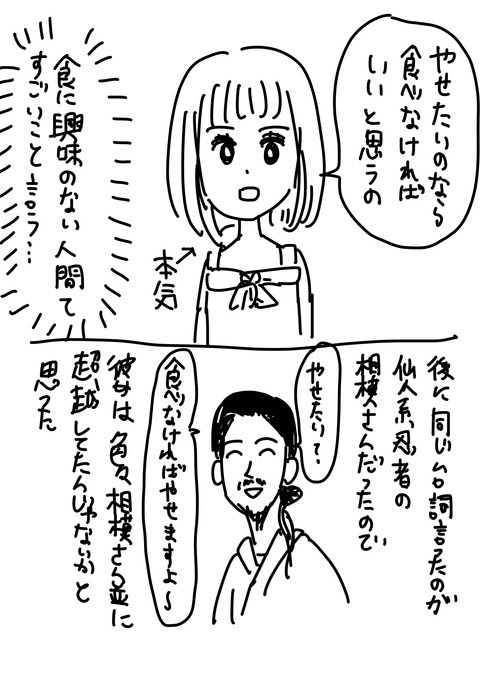 やせたいのなら
食べなければ
いいと思うの
本気
食に興味のない人間て
すごいこと言う…
後に同じ台詞言ったのが
仙人系忍者の
相模さんだったので
やせたい?
食べなければやせますよ〜
彼女は色々相模さん並に
超越してたんじゃないかと
思った